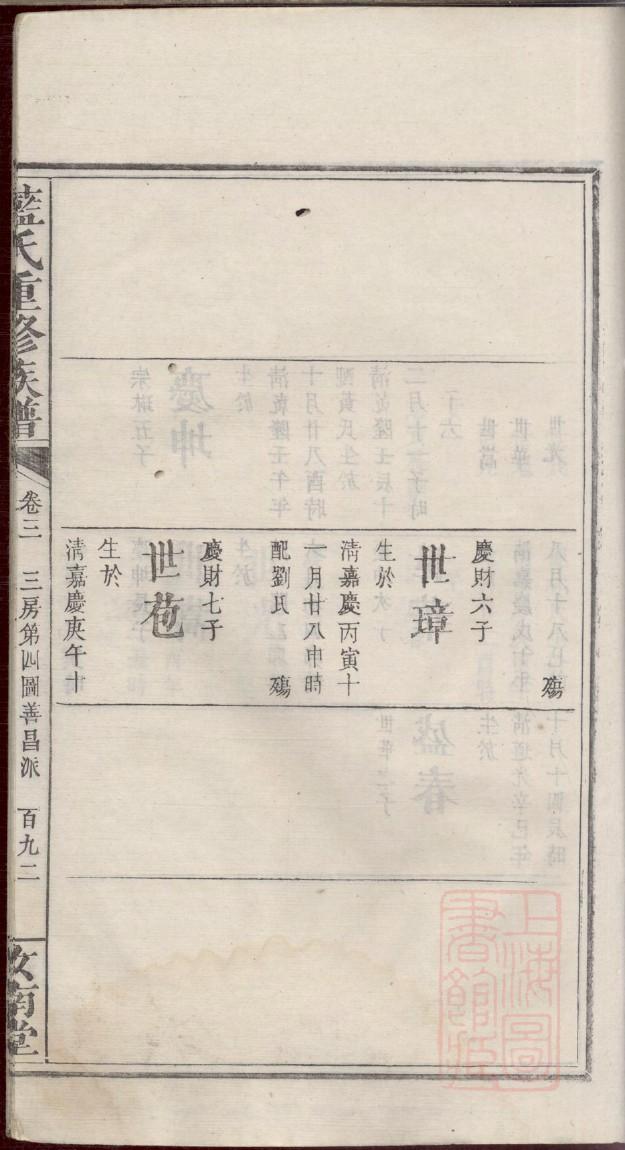 殤
慶財六子
世璋
生於
清嘉慶丙寅十
一月廿八申時
配劉氏　殤
慶財七子
世苞
生於
清嘉慶庚午十
藍氏重修族譜
卷三　三房第四圖善昌派　百九二
汝南堂
上海圖書館藏